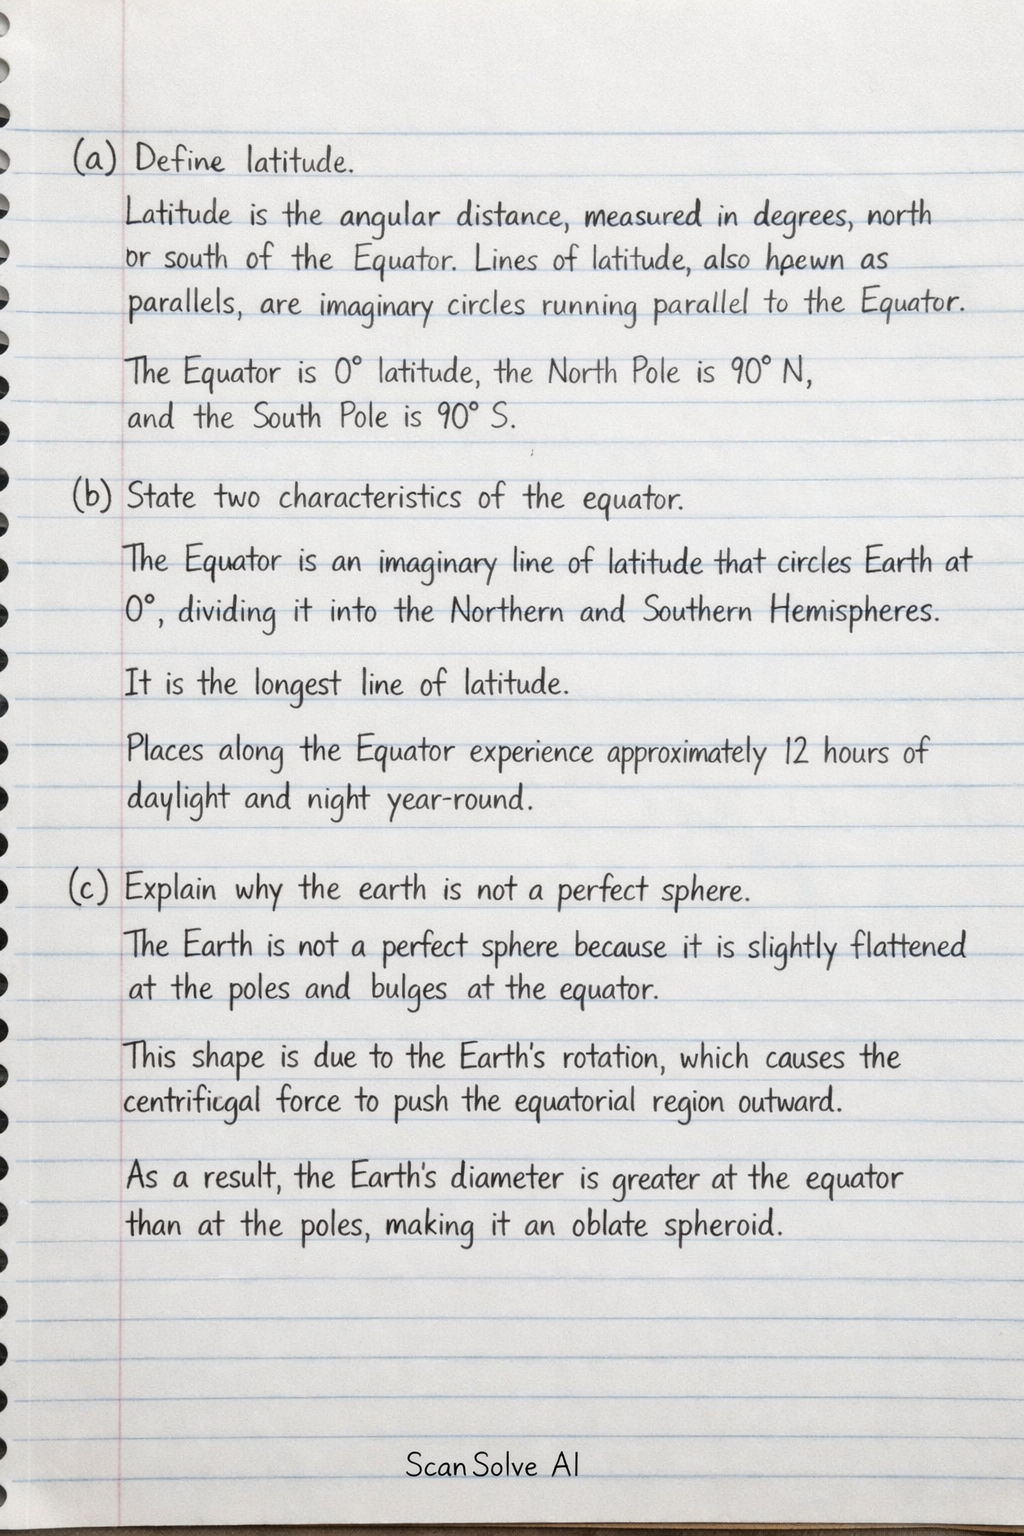 (a) Define latitude.
Latitude is the angular distance, measured in degrees, north
or south of the Equator. Lines of latitude, also hpewn as
parallels, are imaginary circles running parallel to the Equator.
The Equator is 0° latitude, the North Pole is 90° N,
and the South Pole is 90° S.
(b) State two characteristics of the equator.
The Equator is an imaginary line of latitude that circles Earth at
0°, dividing it into the Northern and Southern Hemispheres.
It is the longest line of latitude.
Places along the Equator experience approximately 12 hours of
daylight and night year-round.
(c) Explain why the earth is not a perfect sphere.
The Earth is not a perfect sphere because it is slightly flattened
at the poles and bulges at the equator.
This shape is due to the Earth's rotation, which causes the
centrificgal force to push the equatorial region outward.
As a result, the Earth's diameter is greater at the equator
than at the poles, making it an oblate spheroid.
ScanSolve AI